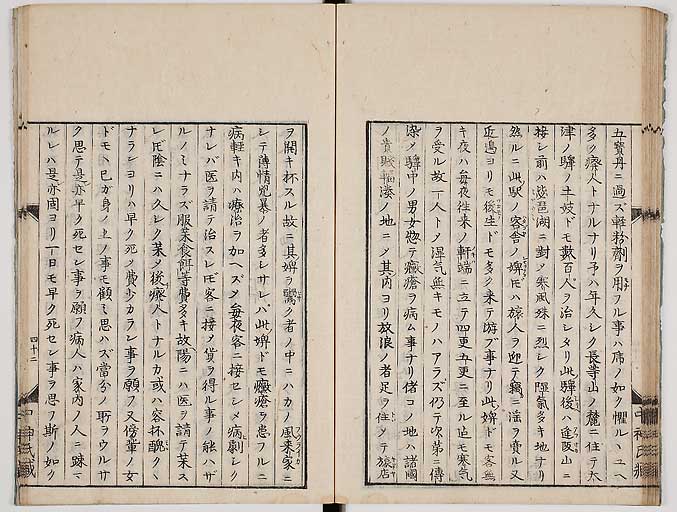 五寳丹ニ過ズ軽粉劑ヲ用フル事ハ虎ノ如ク懼ル、ユヘ
多ク癈人トナルナリ予ハ年久レク長等山ノ麓ニ住テ大
津ノ驛ノ土妓ドモ數百人ヲ治シタリ此驛後ハ逢阪山ニ
接シ前ハ琵琶湖ニ對メ寒風殊ニ烈レク陰氣多キ地ナリ
然ルニ此駅ノ客舎ノ婢ドモハ旅人ヲ迎テ竊ニ淫ヲ賣ル又
近邊ヨリモ後生ドモ多ク来テ游ブ事ナリ此婢ドモ客無
キ夜ハ毎夜往来ノ軒端ニ立テ四更五更ニ至ル迠モ寒気
ヲ受ル故一人トメ湿気無キモノハアラズ仍テ次第ニ傳
染メ驛中ノ男女惣テ黴瘡ヲ病ム事ナリ偖コノ地ハ諸國
ノ貴賤輻湊ノ地ニメ其内ヨリ放浪ノ者足ヲ住メテ旅店
ヲ開キ杯スル故ニ其婢ヲ鬻ク者ノ中ニハカノ風来家ニ
シテ薄情兇暴ノ者多レサレバ此婢ドモ黴瘡ヲ患フルニ
病軽キ内ハ療治ヲ加ヘズメ毎夜客ニ接セシメ病劇レク
ナレバ医ヲ請テ治スレドモ客ニ接メ貨ヲ得ル事ノ能ハザ
ルノミナラズ服薬食餌等費多キ故陽ニハ医ヲ請テ薬ス
レドモ陰ニハ久レク薬メ後癈人トナルカ或ハ容杯醜クヽ
ナランヨリハ早ク死メ費少カラン事ヲ願フ又傍輩ノ女
ドモヽ己カ身ノ上ノ事モ顧ミ思ハズ當分ノ聒ヲウルサ
ク思テ是亦早ク死セン事ヲ願フ病人ハ家内ノ人ニ踈マ
ルレハ是亦固ヨリ一日モ早ク死セン事ヲ思フ斯ノ如ク
四十二
中神氏藏